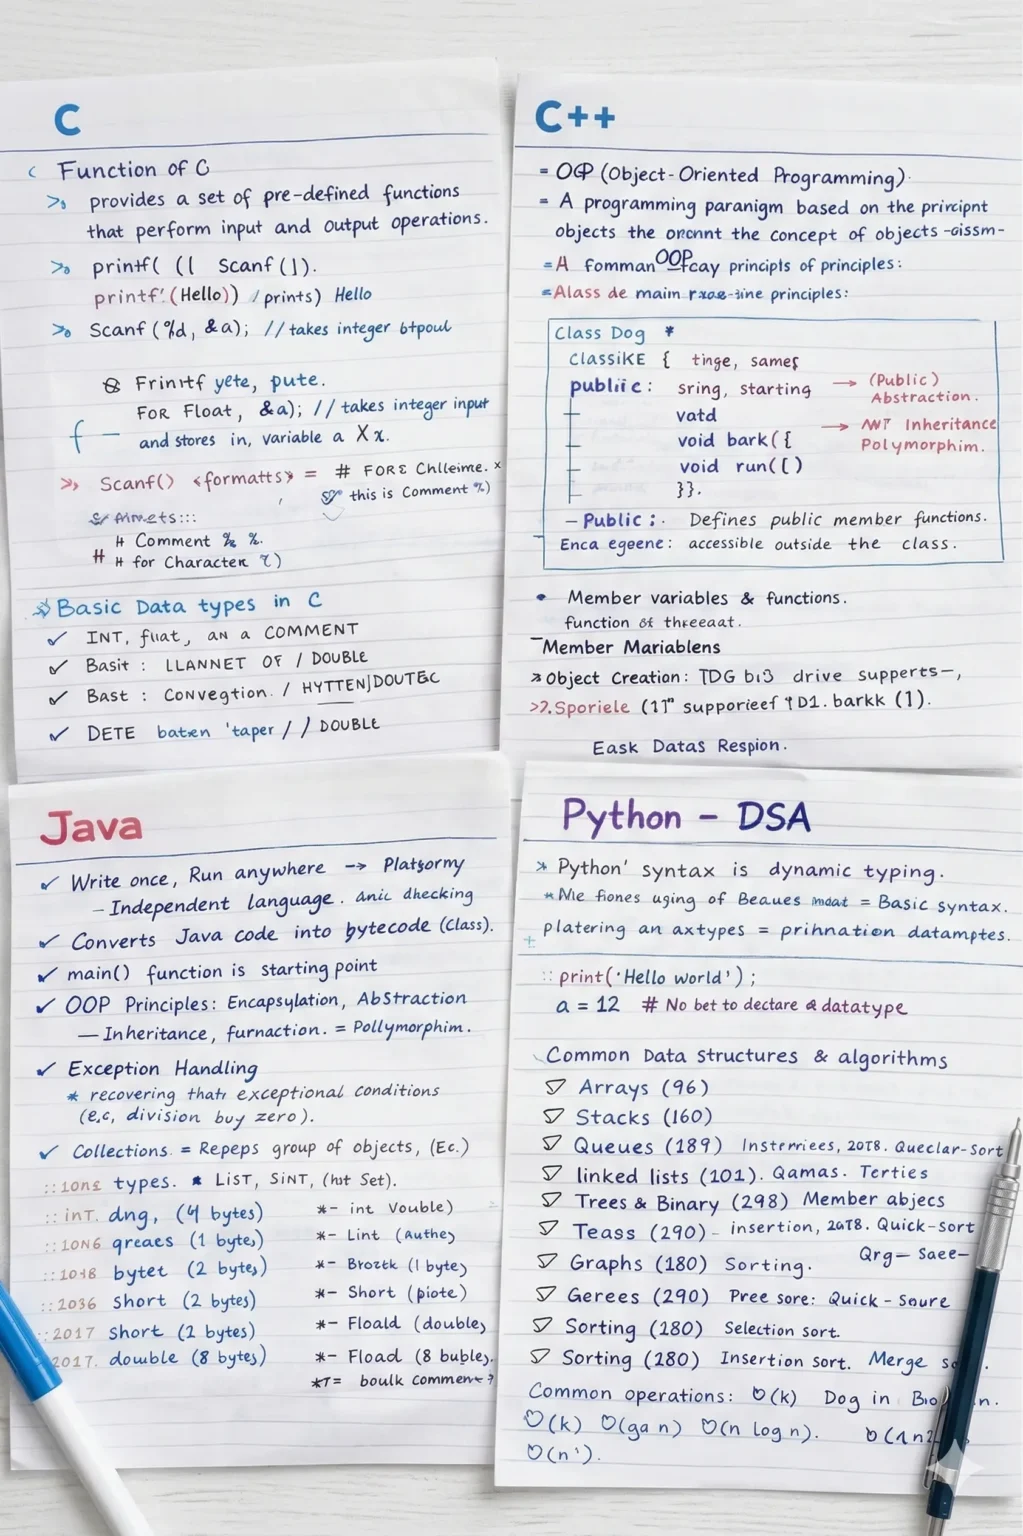 C
Function of C
provides a set of pre-defined functions
that perform input and output operations.
printf( (( Scanf().
printf'.(Hello)) / prints) Hello
Scanf (%d, &a); // takes integer btpoul
Frinitf yete, pute.
FOR Float, &a); // takes integer input
and stores in, variable a Xx.
Scanf() <formatts> = # FORE Chlleime. x
this is Comment %)
# Comment % %.
# # for Character )
Basic Data types in C
✓ INT, fluat, AN a COMMENT
✓ Basit : LLANNET OF / DOUBLE
✓ Bast : Convegtion. / HYTTEN/DOUTEC
✓ DETE baten 'taper / / DOUBLE
C++
= OOP (Object-Oriented Programming).
= A programming paranigm based on the pricipnt
objects the orcnnt the concept of objects -oissm-
= A fomman OOP fcay principls of principles:
= Alass de maim -ine principles:
Class Dog *
ClassiKE { tinge, sames
publiic : sring, starting → (Public)
Abstraction.
vatd
void bark({ → Inheritance
Polymorphim.
void run([)
}}.
- Public : . Defines public member functions.
Enca egeene: accessible outside the class.
• Member variables & functions.
function of threeaat.
Member Mariablens
Object Creation: TDG bi3 drive supports-,
>?. Sporiele (1)" supporieef D1. barkk (1).
Eask Datas Respion.
Java
✓ Write once, Run anywhere → Platsorny
- Independent language. anic dhecking
✓ Converts Java code into bytecode (Class).
✓ main() function is starting point
✓ OOP Principles: Encapsylation, AbStraction
— Inheritance, furnaction. = Pollymorphim.
✓ Exception Handling
* recovering thatr exceptional conditions
(e.c, division buy zero).
✓ Collections. = Repeps group of objects, (Ec.)
types. * LisT, SiNT, (hut Set).
:: inT. dng, (4 bytes) *- int Vouble)
::10N6 greaes (1 byte,) *- Lint (authe)
bytet (2 bytes) *- Broztk (1 byte)
::2036 short (2 bytes) *- Short (piote)
2017 short (2 bytes) *- Floald (double)
2017. double (8 bytes) *- Fload (8 buble).
boulk comment
Python - DSA
Python' syntax is dynamic typing.
Nie fiones uging of Beaues = Basic syntax.
platering an axtypes = prihnation datamptes.
:: print('Hello world') ;
a = 12 # No bet to dectare a datatype
Common Data Structures & algorithms
Arrays (96)
Stacks (160)
Queues (189) Insterriees, 20T8. Queclar-Sort
linked lists (101). Qamas. Terties
Trees & Binary (298) Member abjecs
Teass (290) - insertion, 2018. Quick-sort
Qrg— Saee—
Graphs (180) Sorting.
Gerees (290) Pree sore: Quick - Soure
Sorting (180) Selection sort.
Sorting (280) Insertion sort. Merge
Common operations: O(k) Dog in
O(k) O(ga n) O(n log n).
O(n').